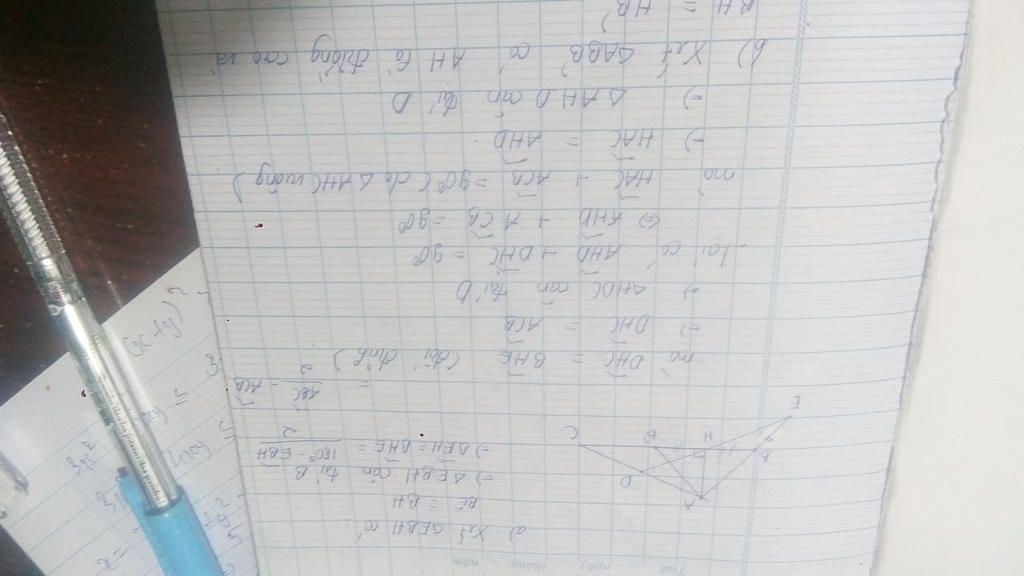 Thứ ngày tháng năm
a) Xét ΔEBH có
BE = BH
→ ΔEBH cân tại B
→ BEH = BHE = (180° - EBH) / 2
= ABC / 2 = ACB
mà DHC = BHE (đối đỉnh)
→ DHC = ACB
→ ΔHDC cân tại D
Lại có AHD + DHC = 90°
⇔ AHD + ACB = 90°
mà HAC + ACB = 90° (do ΔAHC vuông)
→ HAC = AHD
→ ΔAHD cân tại D
b) Xét ΔABB' có AH là đường cao và
BH = HB'
A
B
B'
C
D
E
H
(x+y)²